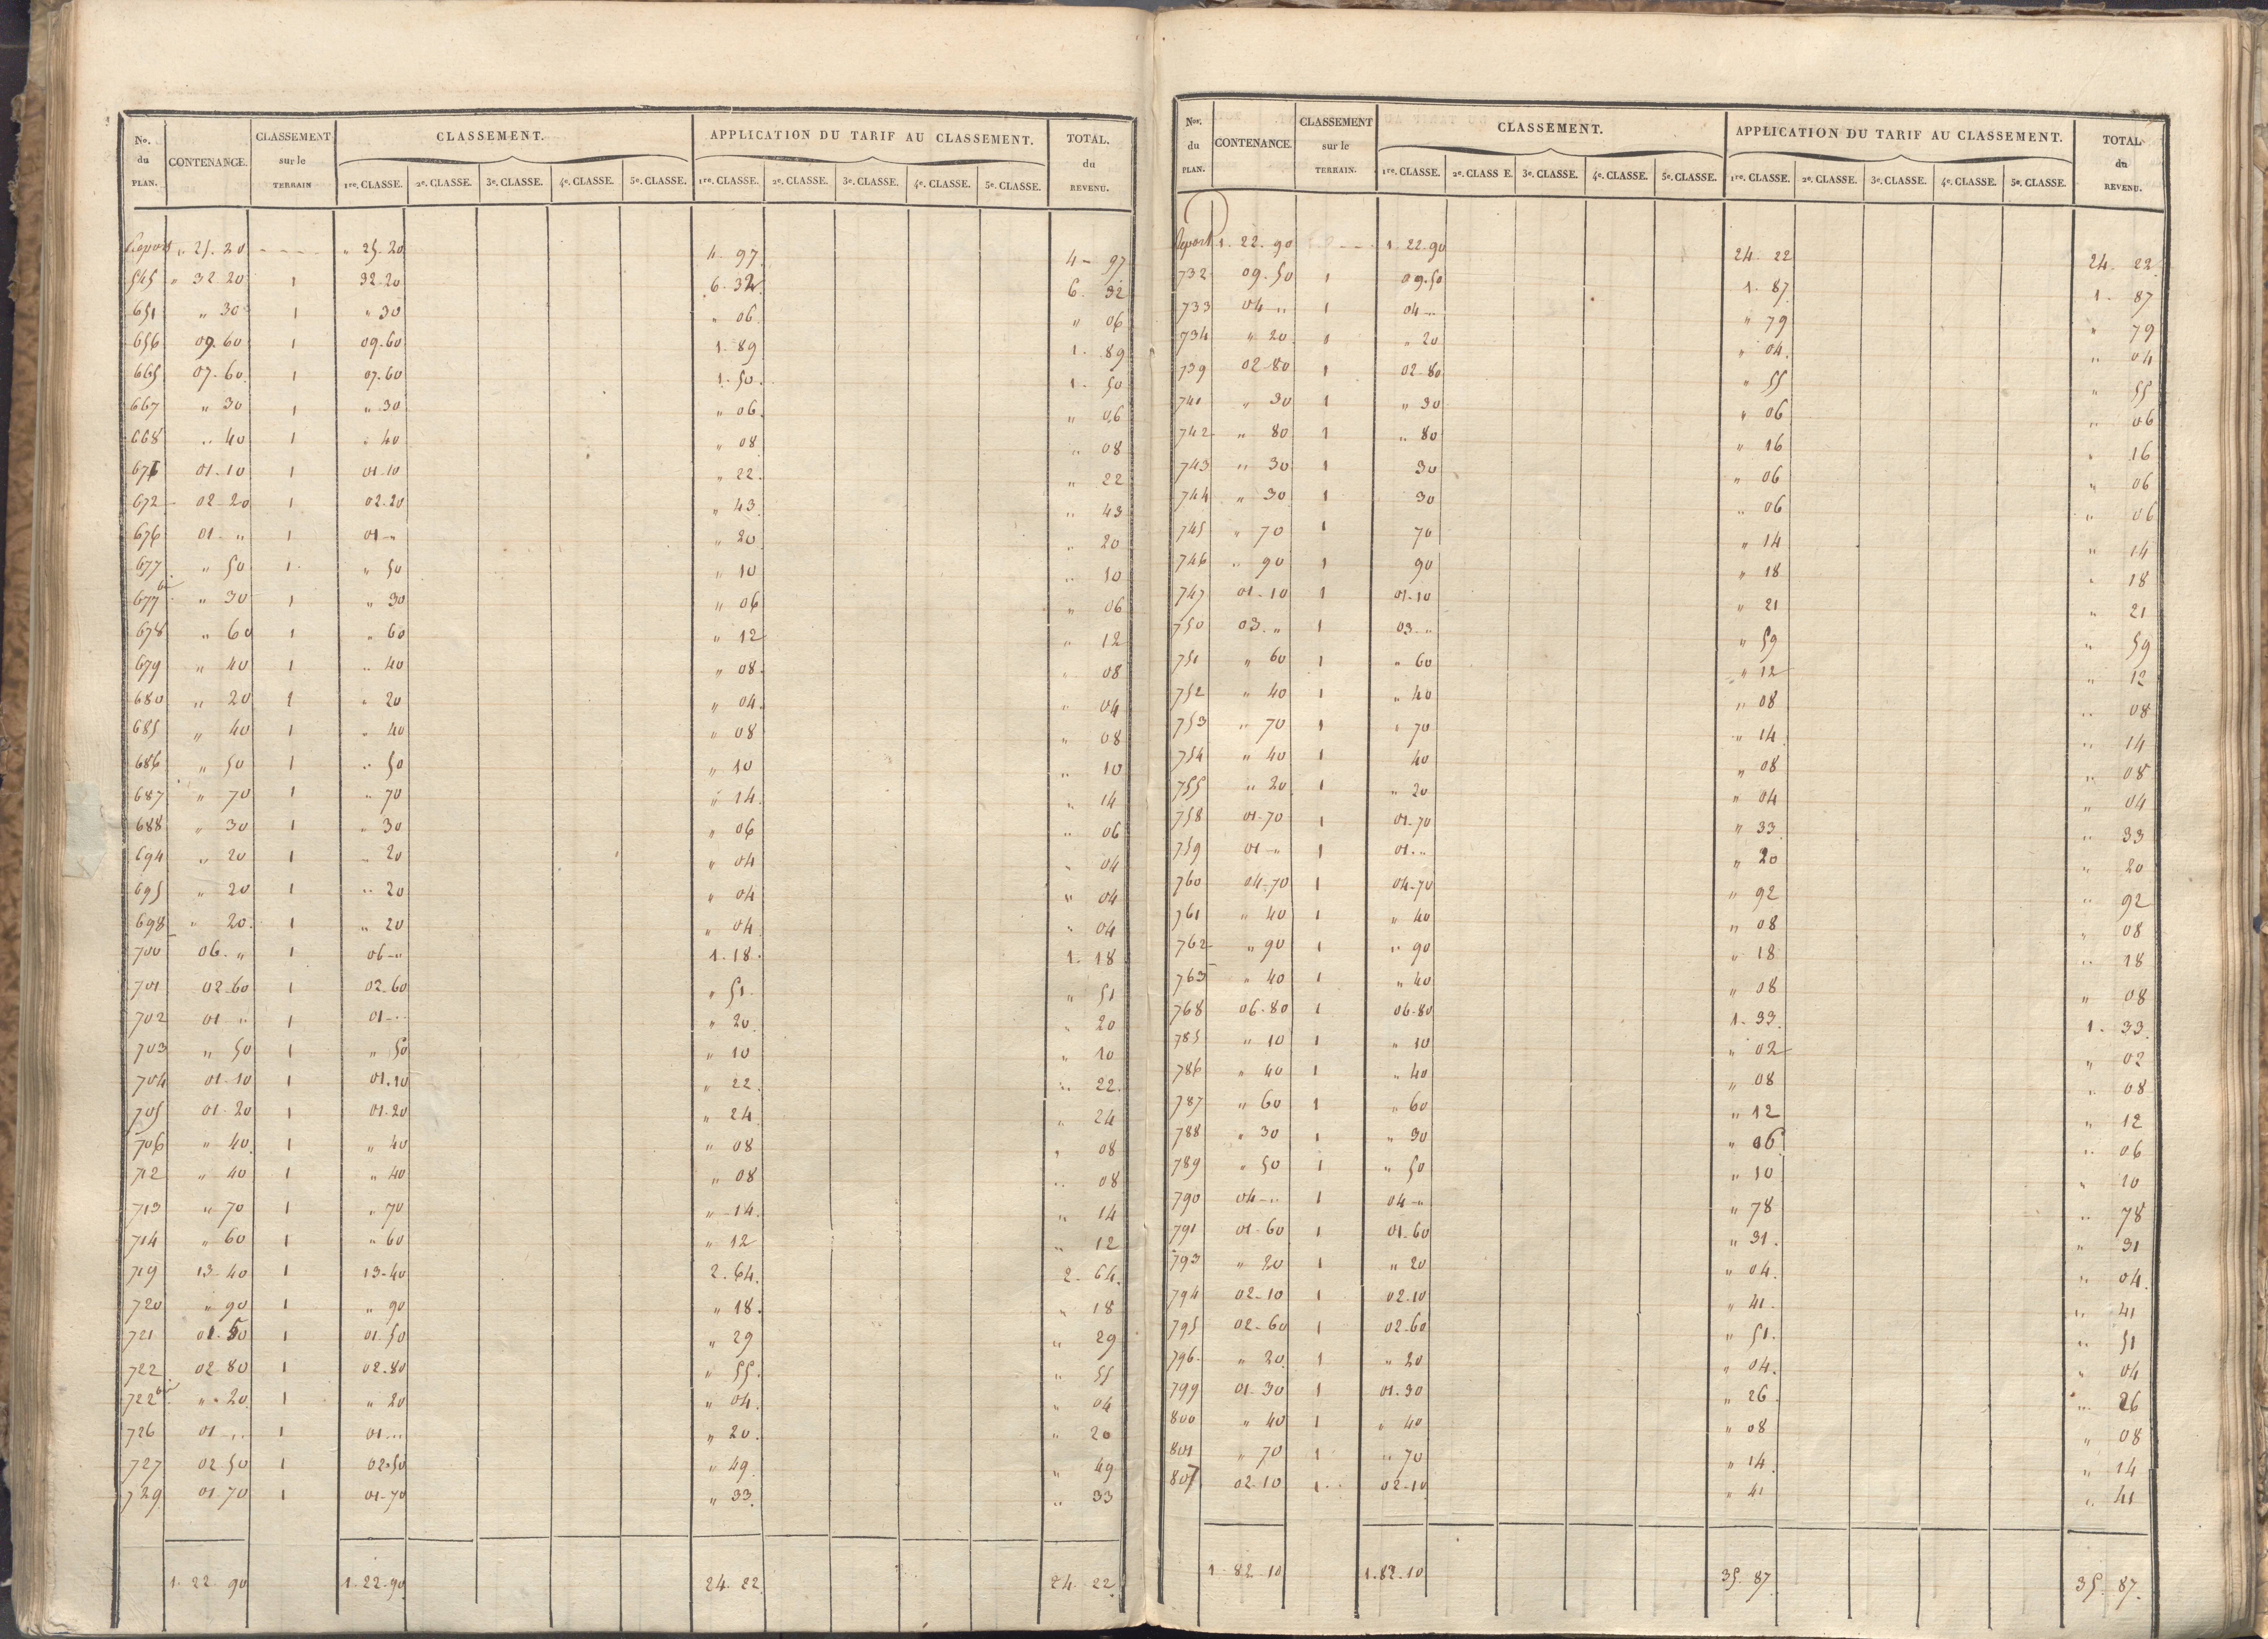 No. du PLAN. CONTENANCE. CLASSEMENT sur le TERRAIN CLASSEMENT. APPLICATION DU TARIF AU CLASSEMENT. TOTAL. du REVENU.
1re. CLASSE. 2e. CLASSE. 3e. CLASSE. 4e. CLASSE. 5e. CLASSE. 1re. CLASSE. 2e. CLASSE. 3e. CLASSE. 4e. CLASSE. 5e. CLASSE.
Report " 25. 20 " 25. 20 4- 97 4- 97
545 " 32 20 1 32-20 6. 32 6. 32
651 " 30 1 " 30 " 06 " 06
656 09. 60 1 09. 60 1. 89 1. 89
665 07. 60 1 07. 60 1. 50 1. 50
667 " 30 1 " 30 " 06 " 06
668 " 40 1 " 40 " 08 " 08
671 01. 10 1 01-10 " 22 " 22
672 02-20 1 02.20 " 43 " 43
676 01- " 1 01- " " 20 " 20
677 " 50 1 " 50 " 10 " 10
677 bis " 30 1 " 30 " 06 " 06
678 " 60 1 " 60 " 12 " 12
679 " 40 1 " 40 " 08 " 08
680 " 20 1 " 20 " 04 " 04
685 " 40 1 " 40 " 08 " 08
686 " 50 1 " 50 " 10 " 10
687 " 70 1 " 70 " 14 " 14
688 " 30 1 " 30 " 06 " 06
694 " 20 1 " 20 " 04 " 04
695 " 20 1 " 20 " 04 " 04
698 " 20 1 " 20 " 04 " 04
700 06. " 1 06- " 1. 18 1. 18
701 02-60 1 02-60 " 51 " 51
702 01 " 1 01- " " 20 " 20
703 " 50 1 " 50 " 10 " 10
704 01-10 1 01.10 " 22 " 22
705 01-20 1 01.20 " 24 " 24
706 " 40 1 " 40 " 08 " 08
712 " 40 1 " 40 " 08 " 08
713 " 70 1 " 70 " 14 " 14
714 " 60 1 " 60 " 12 " 12
719 13-40 1 13-40 2. 64 2. 64
720 " 90 1 " 90 " 18 " 18
721 01. 50 1 01. 50 " 29 " 29
722 02 80 1 02.80 " 55 " 55
722 bis " 20 1 " 20 " 04 " 04
726 01 " 1 01 " " 20 " 20
727 02 50 1 02.50 " 49 " 49
729 01.70 1 01-70 " 33 " 33
1. 22 90 1. 22. 90 24. 22 24. 22
Nos. du PLAN. CONTENANCE. CLASSEMENT sur le TERRAIN. CLASSEMENT. APPLICATION DU TARIF AU CLASSEMENT. TOTAL du REVENU.
1re. CLASSE. 2e. CLASS E. 3e. CLASSE. 4e. CLASSE. 5e. CLASSE. 1re. CLASSE. 2e. CLASSE. 3e. CLASSE. 4e. CLASSE. 5e. CLASSE.
Report 1. 22. 90 1. 22. 90 24. 22 24. 22
732 09. 50 1 09.50 1. 87 1. 87
733 04 " 1 04 " " 79 " 79
734 " 20 1 " 20 " 04 " 04
739 02-80 1 02-80 " 55 " 55
741 " 30 1 " 30 " 06 " 06
742 " 80 1 " 80 " 16 " 16
743 " 30 1 30 " 06 " 06
744 " 30 1 30 " 06 " 06
745 " 70 1 70 " 14 " 14
746 " 90 1 90 " 18 " 18
747 01-10 1 01-10 " 21 " 21
750 03. " 1 03- " " 59 " 59
751 " 60 1 " 60 " 12 " 12
752 " 40 1 " 40 " 08 " 08
753 " 70 1 " 70 " 14 " 14
754 " 40 1 40 " 08 " 08
755 " 20 1 " 20 " 04 " 04
758 01-70 1 01-70 " 33 " 33
759 01- " 1 01. " " 20 " 20
760 04-70 1 04-70 " 92 " 92
761 " 40 1 " 40 " 08 " 08
762 " 90 1 " 90 " 18 " 18
763 " 40 1 " 40 " 08 " 08
768 06-80 1 06-80 1. 33 1. 33
785 " 10 1 " 10 " 02 " 02
786 " 40 1 " 40 " 08 " 08
787 " 60 1 " 60 " 12 " 12
788 " 30 1 " 30 " 06 " 06
789 " 50 1 " 50 " 10 " 10
790 04- " 1 04- " " 78 " 78
791 01-60 1 01.60 " 31 " 31
793 " 20 1 " 20 " 04 " 04
794 02-10 1 02.10 " 41 " 41
795 02-60 1 02.60 " 51 " 51
796 " 20 1 " 20 " 04 " 04
799 01-30 1 01.30 " 26 " 26
800 " 40 1 " 40 " 08 " 08
801 " 70 1 " 70 " 14 " 14
807 02-10 1 02-10 " 41 " 41
1-82-10 1.82.10 35. 87 35. 87